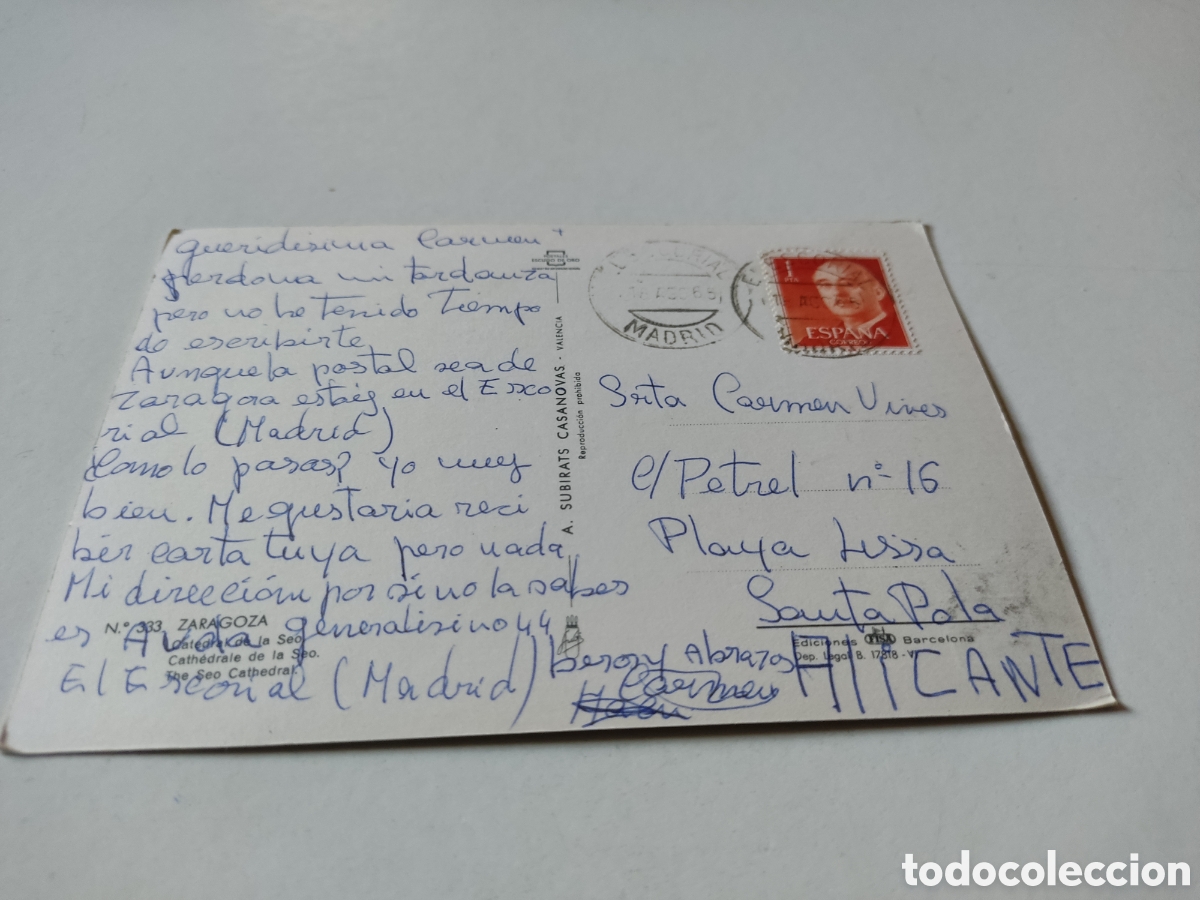 queridisima Carmen
perdona mi tardanza
pero no he tenido tiempo
de escribirte
Aunque la postal sea de
Zaragoza estoy en el Esco
rial (Madrid)
Como lo pasas? yo muy
bien. Me gustaria reci
bir carta tuya pero nada
Mi dirección por si no la sabes
es Avda generalisino 44
El Escorial (Madrid)
besos y Abrazos
Carmen
N.º 333 ZARAGOZA
Catedral de la Seo.
Cathédrale de la Seo.
The Seo Cathedral.
A. SUBIRATS CASANOVAS - VALENCIA
Reproducción prohibida
EL ESCORIAL
MADRID
1 PTA
ESPAÑA
CORREOS
Srta Carmen Vives
C/ Petrel nº 16
Playa Lissa
Santa Pola
ALICANTE
Ediciones FISA Barcelona
Dep. Legal B. 17318-V
todocoleccion